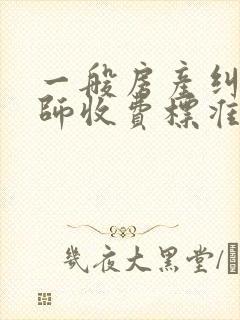 一般房產糾
師收費標准
幾夜大黑堂/